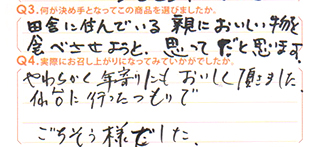 Q3.何が決め手となってこの商品を選びましたか。
田舎に住んでいる親においしい物を
食べさせようと、思ってだと思います。
Q4.実際にお召し上がりになってみていかがでしたか。
やわらかく年寄りにもおいしく頂きました
仙台に行ったつもりで
ごちそう様でした。